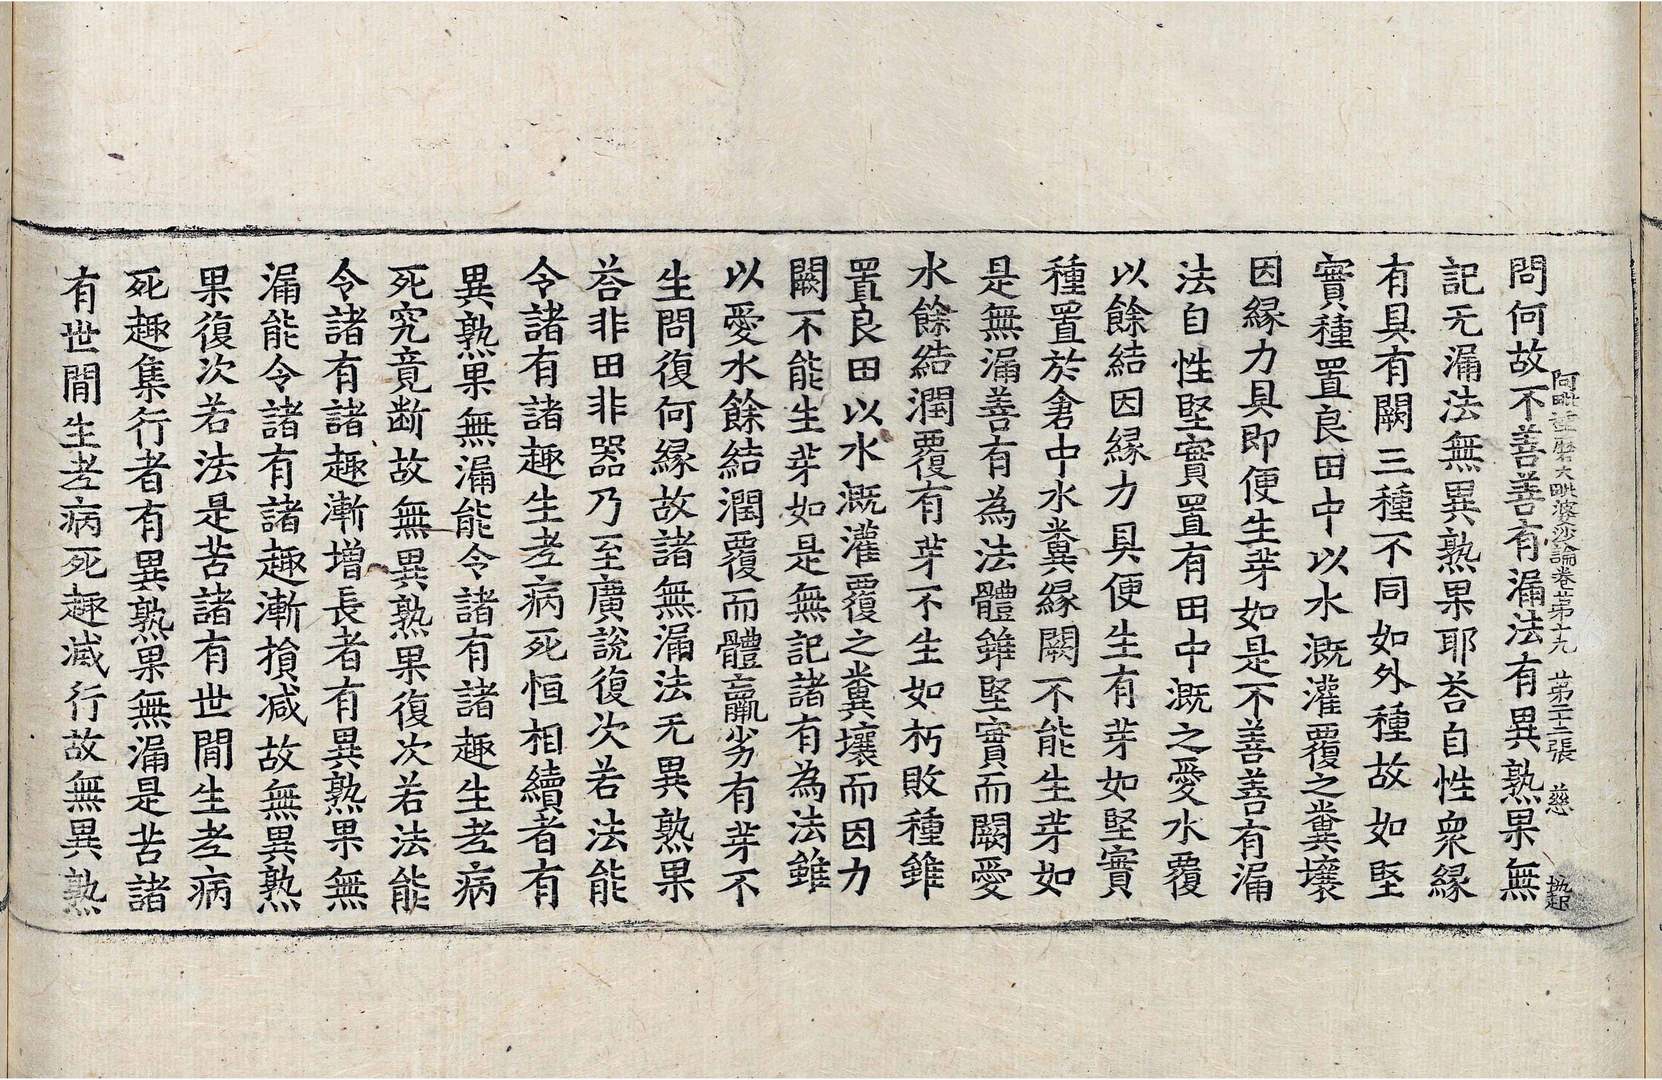 阿毗達磨大毗婆沙論卷苐十九 苐二十二張 慈
問何故不善善有漏法有異熟果無
記无漏法無異熟果耶荅自性衆緣
有具有闕三種不同如外種故如堅
實種置良田中以水溉灌覆之糞壤
因緣力具即便生芽如是不善善有漏
法自性堅實置有田中溉之愛水覆
以餘結因緣力具便生有芽如堅實
種置於倉中水糞緣闕不能生芽如
是無漏善有為法體雖堅實而闕愛
水餘結潤覆有芽不生如朽敗種雖
置良田以水溉灌覆之糞壤而因力
闕不能生芽如是無記諸有為法雖
以愛水餘結潤覆而體羸劣有芽不
生問復何緣故諸無漏法无異熟果
荅非田非器乃至廣說復次若法能
令諸有諸趣生老病死恒相續者有
異熟果無漏能令諸有諸趣生老病
死究竟断故無異熟果復次若法能
令諸有諸趣漸增長者有異熟果無
漏能令諸有諸趣漸損減故無異熟
果復次若法是苦諸有世間生老病
死趣集行者有異熟果無漏是苦諸
有世間生老病死趣滅行故無異熟